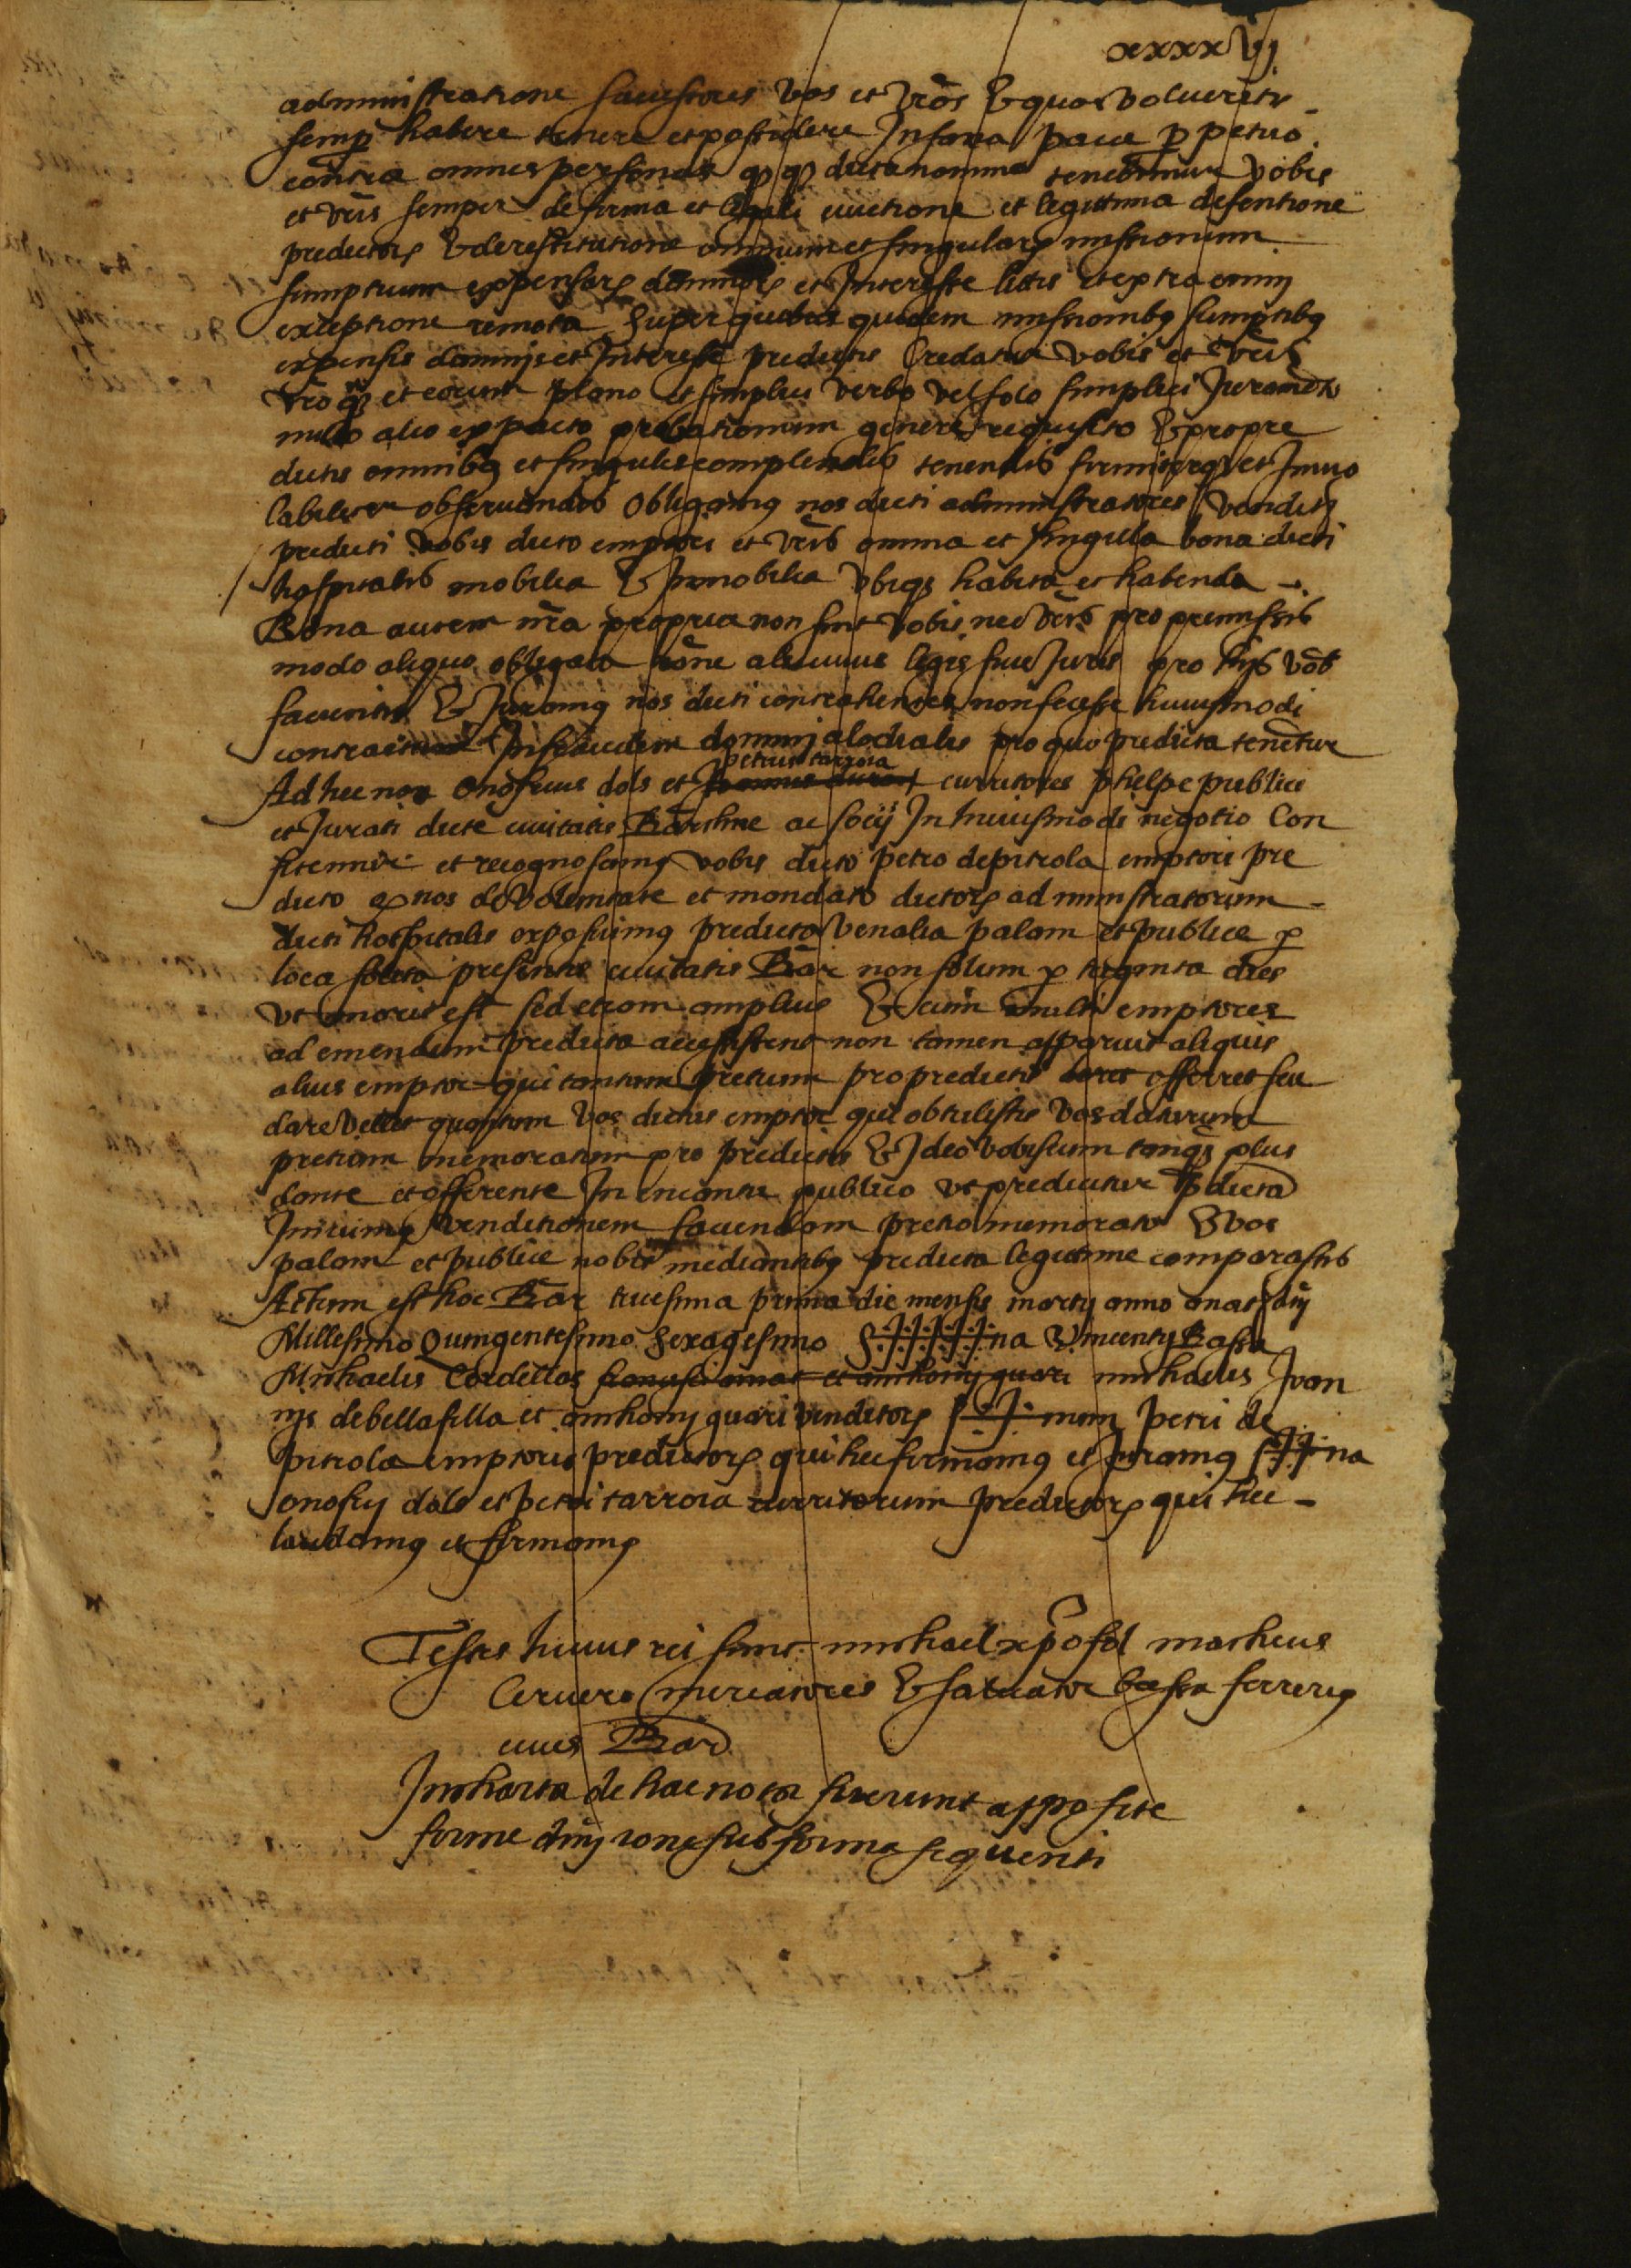 xxxxvij
administratione successores vos et vr̃os & quos volueritis
semp habere tenere et possidere In sana pace p petuo
contra omnes personas q q dicta nomina tenebimur vobis
et vr̃is semper de firma et legali euictione et legittima defentione
predictorꝝ & de restitutione omnium et singularꝝ missionum
sumptuum expensarꝝ damnorꝝ et Interesse litis et extra omni
exceptione remota Super quibus quidem missionibꝰ sumptibꝰ
expensis damnis et Interesse predictis Credatur vobis et vr̃is
vr̃o qꝫ et eorum plano et simplici verbo vel solo simplici Juramẽto
nullo alio expacto probationum genere requisito & pro pre
dictis omnibꝰ et singulis complendis tenendis firmiter qꝫ et Inuio
labiliter obseruandis Obligamꝰ nos dicti administratores venditꝫ
predicti vobis dicto emptori et vr̃is omnia et singula bona dicti
hospitalis mobilia & Inmobilia vbiqꝫ habita et habenda
Bona autem nr̃a propria non sint vobis nec vr̃is pro premissis
modo aliquo obligata rõne alicuius legis siue Juris pro hijs vob̃
facientis & Juramꝰ nos dicti contrahentes non fecisse huiusmodi
contractum In fraudem dominj alodialis pro quo predicta tenẽtur
petrus tarroia
Ad hec nos Onofrius dols et curritores phelpe publici
et Jurati dicte ciuitatis Barchne ac socij In huiusmodi negotio Con
fitemur et recognoscimꝰ vobis dicto petro de pitrola emptori pre
dicto qꝫ nos de voluntate et mandato dictorꝝ administratorum
dicti hospitalis exposuimꝰ predicta venalia palam et publice p
loca solita presentis ciuitatis Bar̃ non solum p triginta dies
vt moris est sed etiam amplius Et cum multi emptores
ad emendum predicta accessissent non tamen apparuit aliquis
alius emptor qui tantum pretium pro predictis offerret seu
dare vellet quantum vos dictus emptor qui obtulistis vos daturum
pretium memoratum pro predictis & Ideo vobiscum tanqꝫ plus
dante et offerente In encantu publico vt predicitur p̃dicta
Iniuimꝰ venditionem faciendam pretio memorato & vos
palam et publice nobis mediantibꝰ predicta legittime comparastis
Actum est hoc Bar̃ tricesima prima die mensis martij anno a nat dñj
Millesimo Quingentesimo Sexagesimo na Vincentij Bassa
Michaelis Cordellas francisci amat et anthonij quari michaelis Joan
nis de bellafilla et anthonij quari venditorꝝ num petri de
pitrola emptoris predictorꝝ qui hec firmamꝰ et Juramꝰ na
onofrij dols et petri tarroia curritorum predictorꝝ qui hec
laudamꝰ et firmamꝰ
Testes huius rei sunt michael xp̃ofol matheus
Ceruero mercatores & saluator ferrerꝰ
ciues Bar̃
In charta de hac nota fuerunt apposite
firme dñij sub forma sequenti